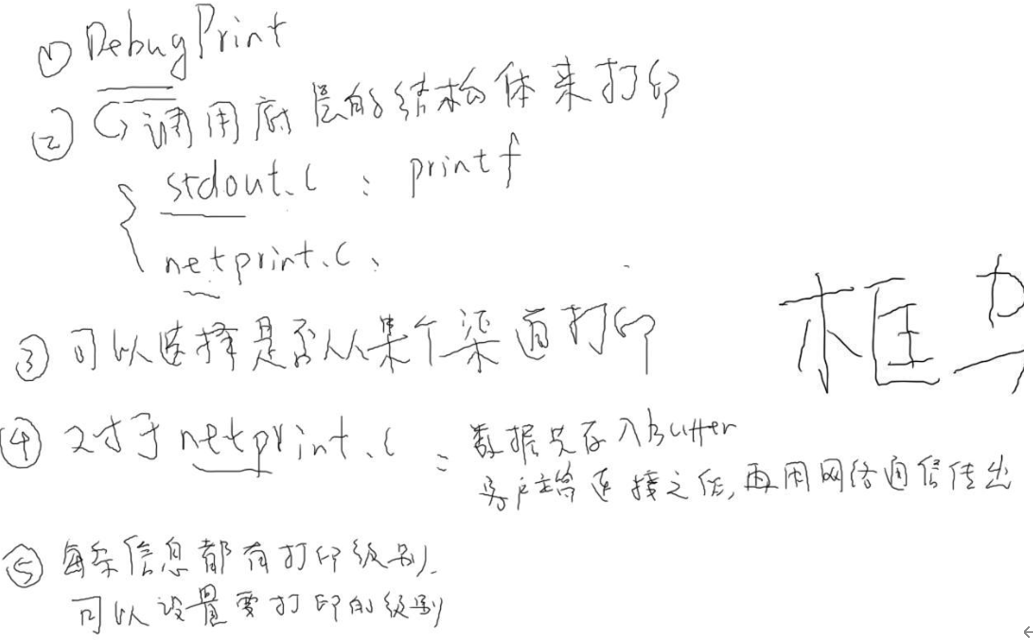 ① DebugPrint
② 调用底层的结构体来打印
stdout.c : printf
netprint.c :
③ 可以选择是否从某个渠道打印
框
④ 对于netprint.c : 数据先存入Buffer
客户端连接之后,再用网络通信传出
⑤ 每条信息都有打印级别.
可以设置要打印的级别